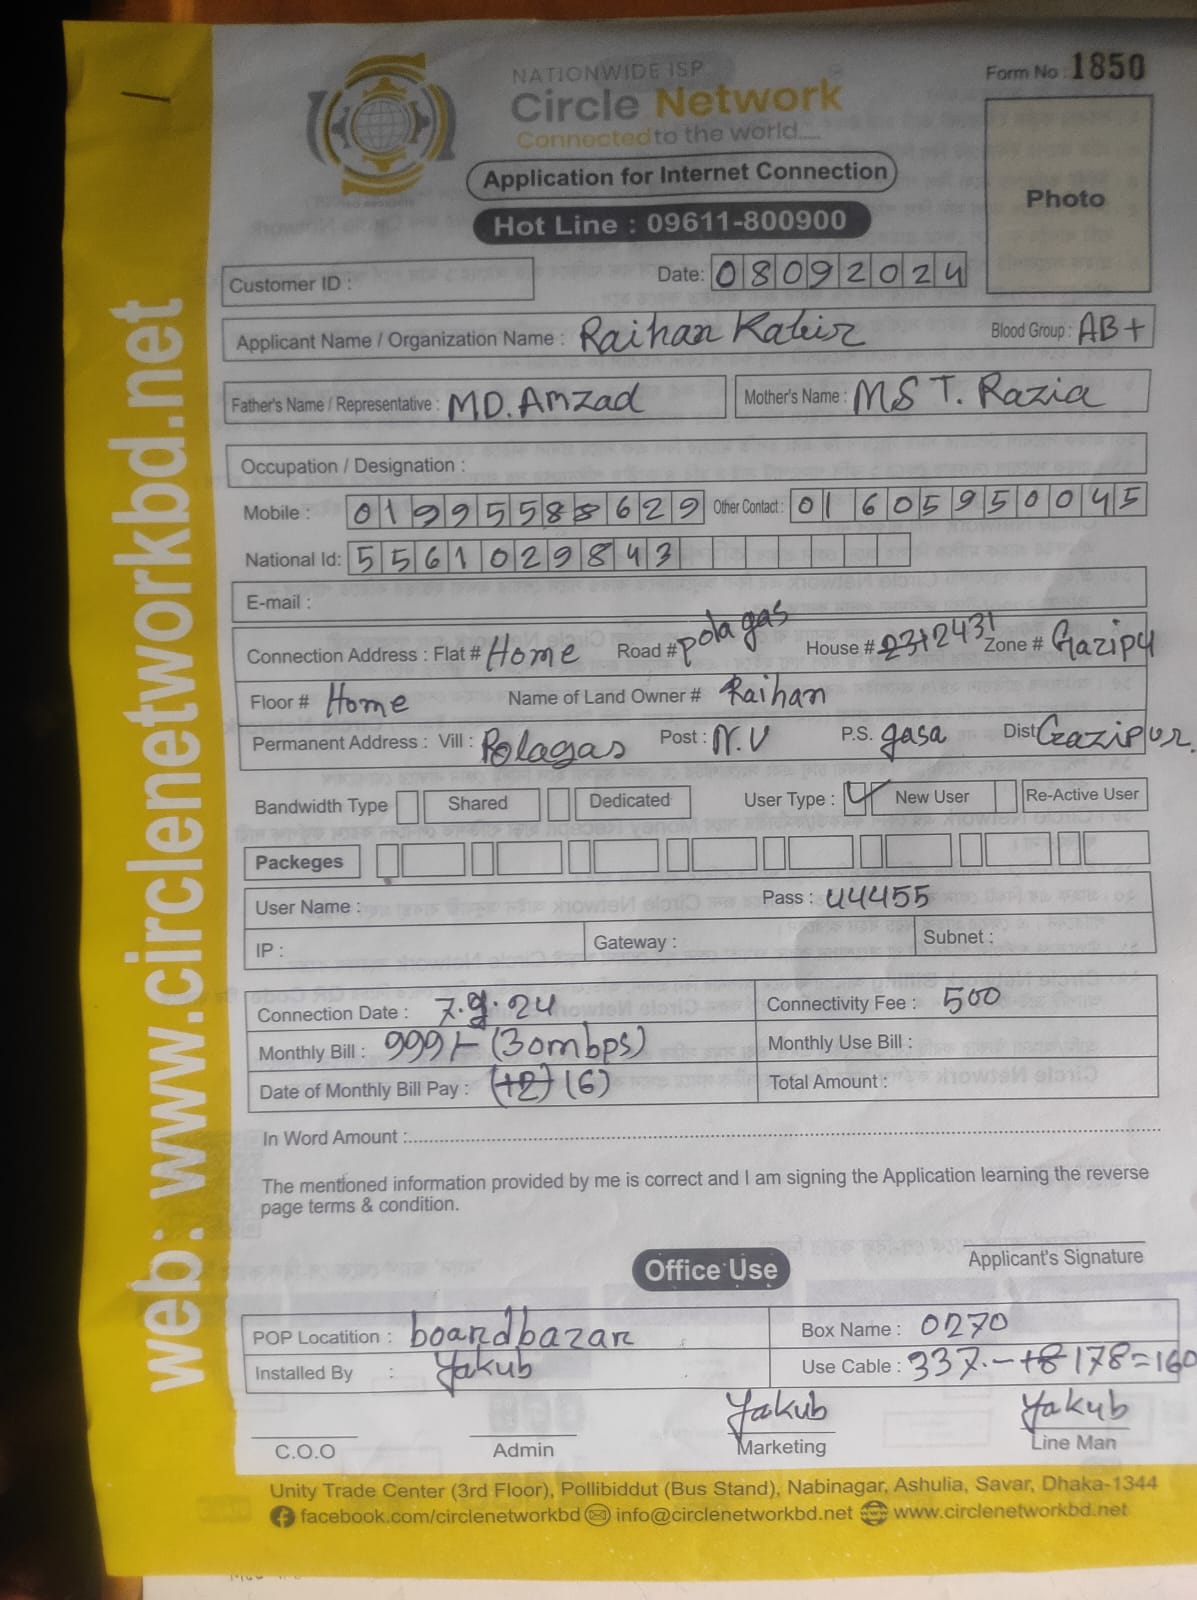 NATIONWIDE ISP
Circle Network
Connected to the world....
Form No : 1850
Application for Internet Connection
Hot Line : 09611-800900
Photo
Customer ID :
Date: 08092024
Applicant Name / Organization Name : Raihan Kabir
Blood Group : AB+
Father's Name / Representative : MD. Amzad
Mother's Name : MST. Razia
Occupation / Designation :
Mobile : 01995588629 Other Contact : 01605950045
National Id: 5561029843
E-mail :
Connection Address : Flat # Home Road # pola gas House # 2431 Zone # Gazipu
Floor # Home Name of Land Owner # Raihan
Permanent Address : Vill : Polagas Post : N.U P.S. gasa Dist Gazipur.
Bandwidth Type Shared Dedicated User Type : New User Re-Active User
Packeges
User Name : Pass : 44455
IP : Gateway : Subnet :
Connection Date : 7.9.24 Connectivity Fee : 500
Monthly Bill : 999/- (30mbps) Monthly Use Bill :
Date of Monthly Bill Pay : (6) Total Amount :
In Word Amount :
The mentioned information provided by me is correct and I am signing the Application learning the reverse
page terms & condition.
Applicant's Signature
Office Use
POP Locatition : boardbazar Box Name : 0270
Installed By : Yakub Use Cable : 337.- 178=160
Yakub Yakub
C.O.O Admin Marketing Line Man
Unity Trade Center (3rd Floor), Pollibiddut (Bus Stand), Nabinagar, Ashulia, Savar, Dhaka-1344
facebook.com/circlenetworkbd info@circlenetworkbd.net www.circlenetworkbd.net
web: www.circlenetworkbd.net